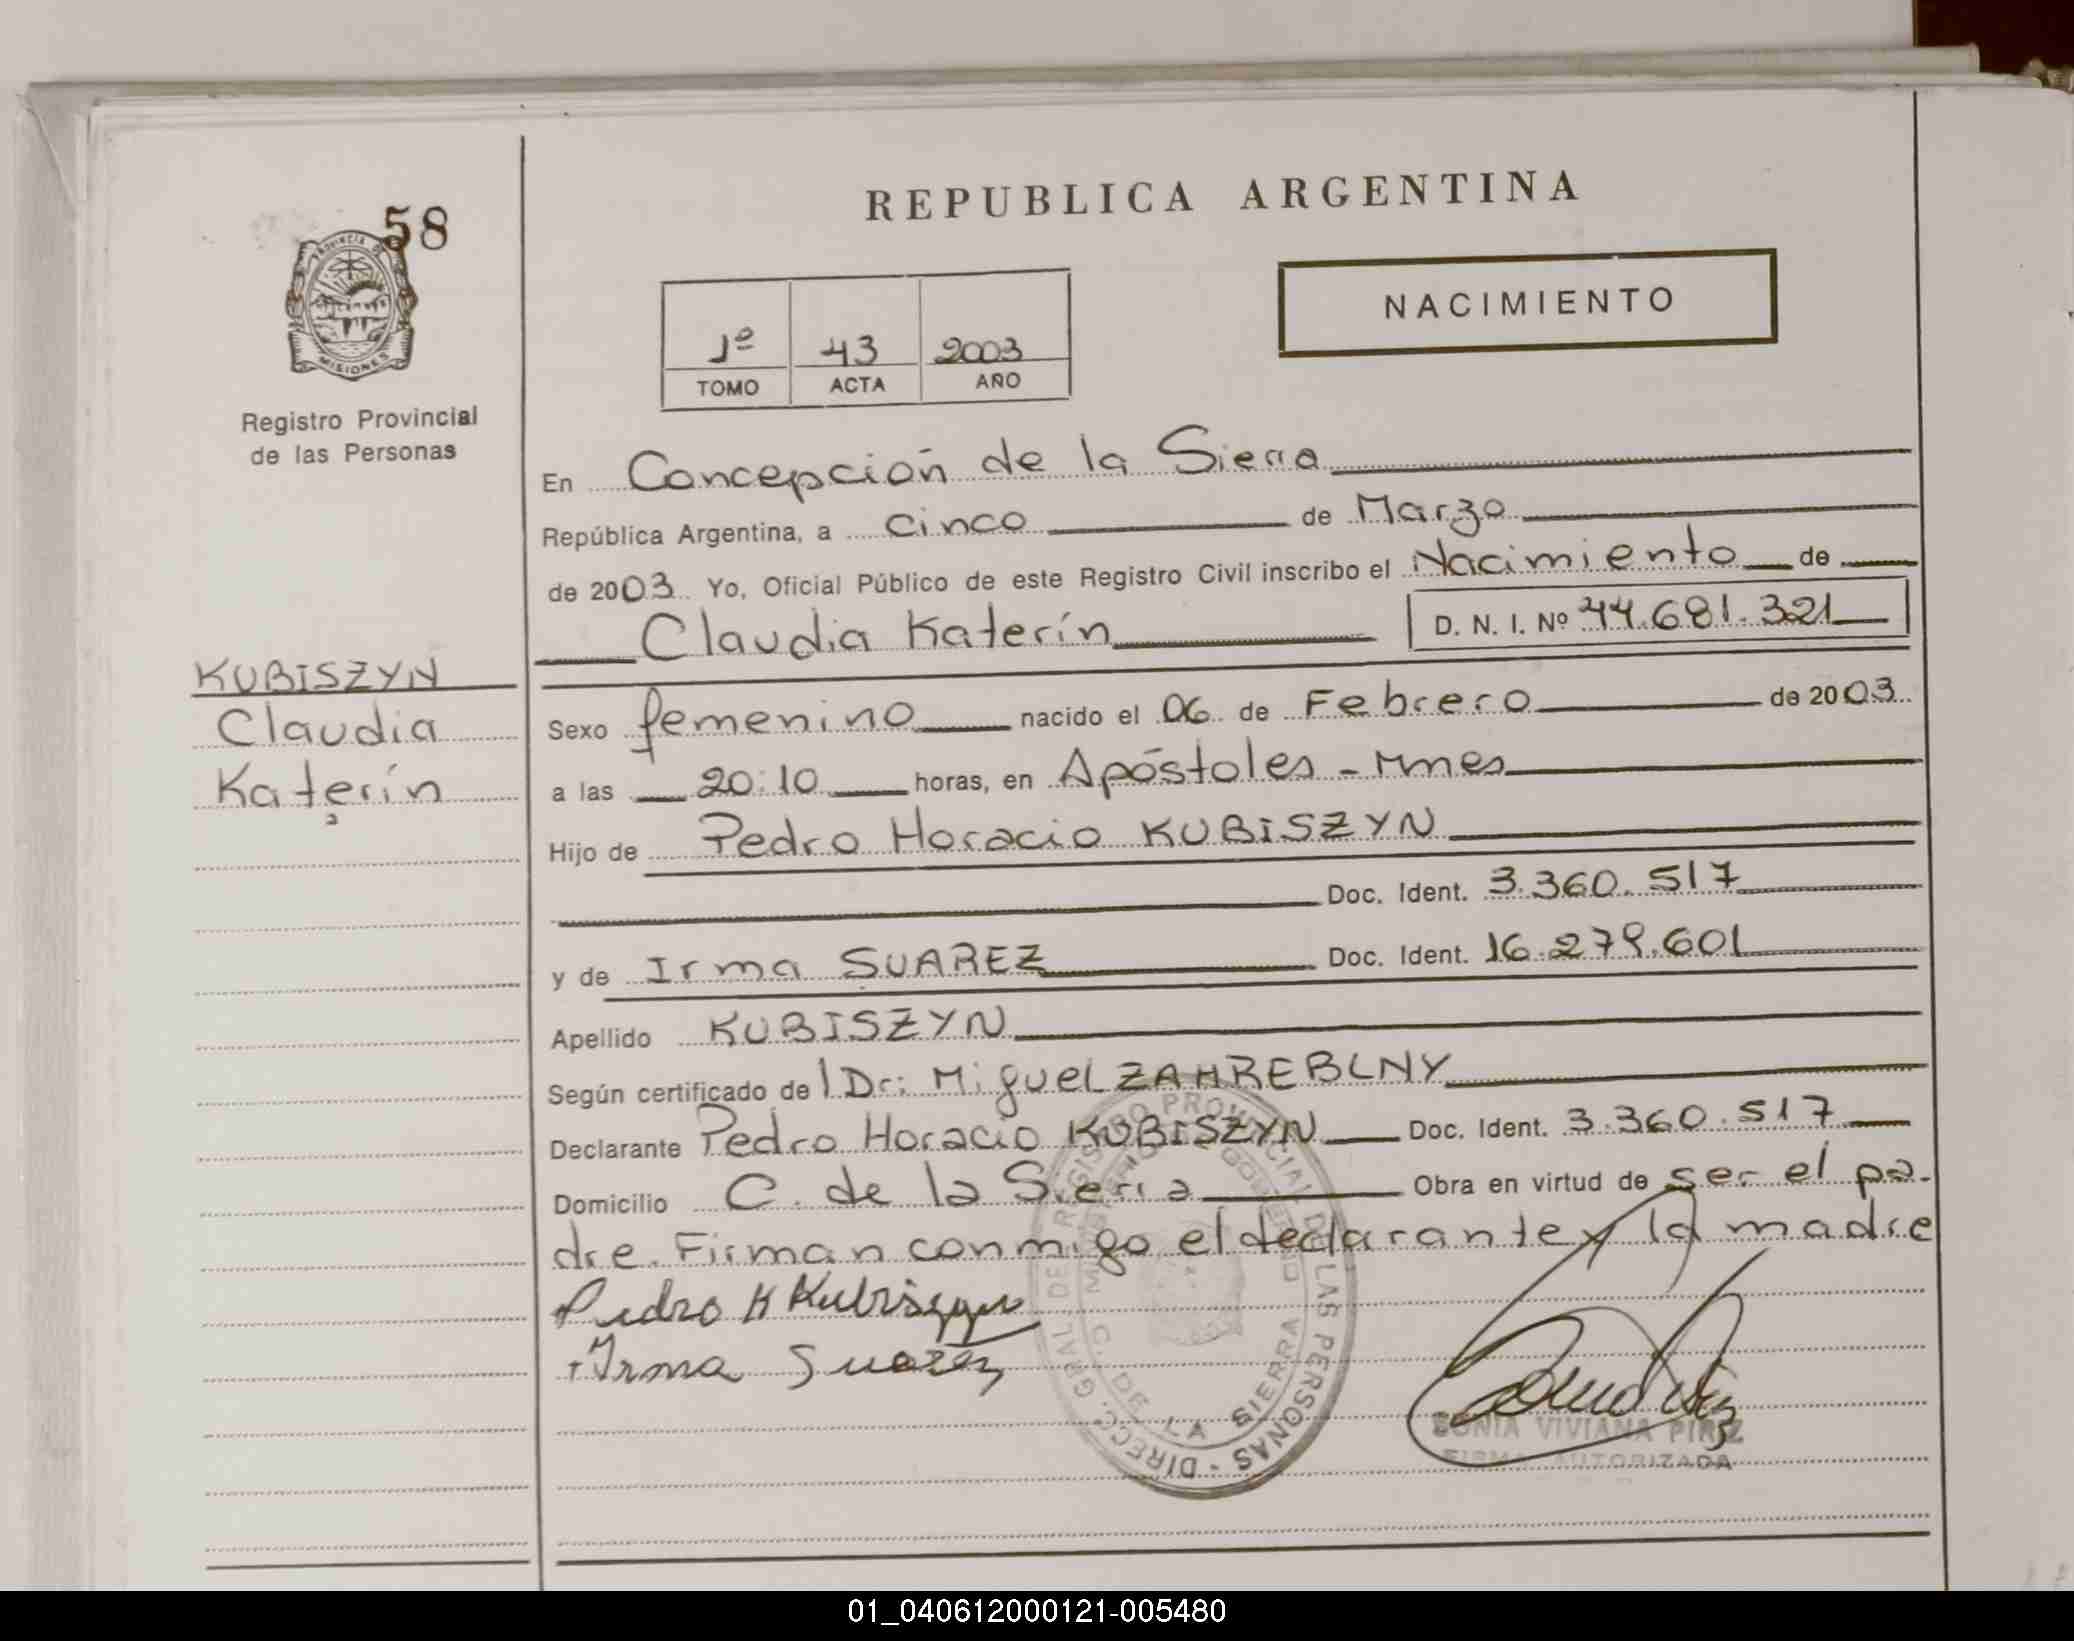 REPUBLICA ARGENTINA
58
PROVINCIA DE
MISIONES
NACIMIENTO
1º 43 2003
TOMO ACTA AÑO
Registro Provincial
de las Personas
En Concepción de la Sierra
República Argentina, a cinco de Marzo
de 2003. Yo, Oficial Público de este Registro Civil inscribo el Nacimiento de
Claudia Katerín D. N. I. Nº 44.681.321
KUBISZYN
Claudia
Katerín
Sexo femenino nacido el 06 de Febrero de 2003
a las 20:10 horas, en Apóstoles - Mnes
Hijo de Pedro Horacio KUBISZYN
Doc. Ident. 3.360.517
y de Irma SUAREZ Doc. Ident. 16.279.601
Apellido KUBISZYN
Según certificado de l Dr: Miguel ZAHREBLNY
Declarante Pedro Horacio KUBISZYN Doc. Ident. 3.360.517
Domicilio C. de la Sierra Obra en virtud de ser el pa-
dre. Firman conmigo el declarante y la madre
Pedro H Kubiszyn
Irma Suarez
DIRECC. GRAL. DE REGISTRO PROVINCIAL DE LAS PERSONAS -
C. DE LA SIERRA
SONIA VIVIANA PIRIZ
FIRMA AUTORIZADA
01_040612000121-005480